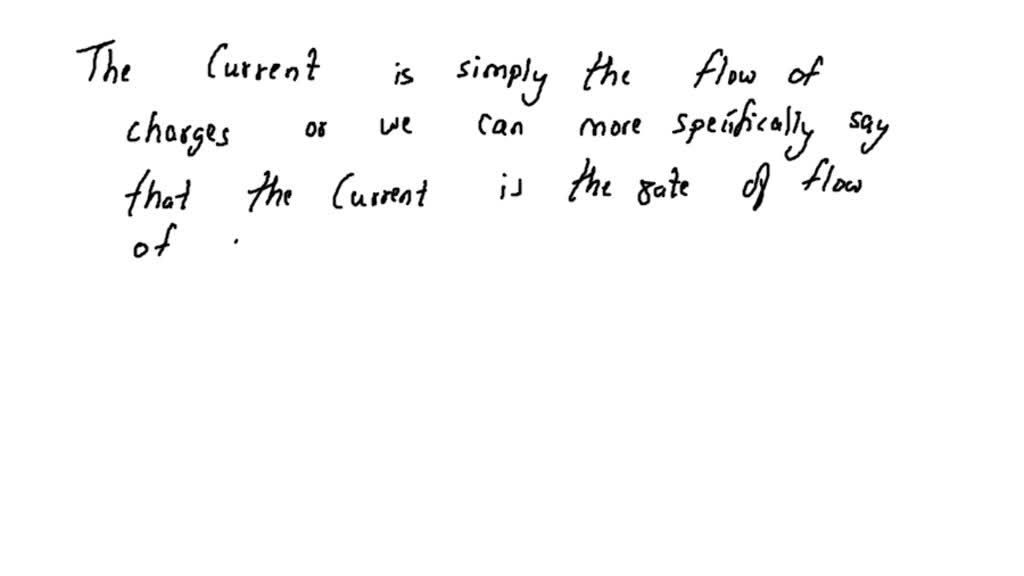 The Current is simply the flow of
charges or we can more specifically say
that the Current is the rate of flow
of